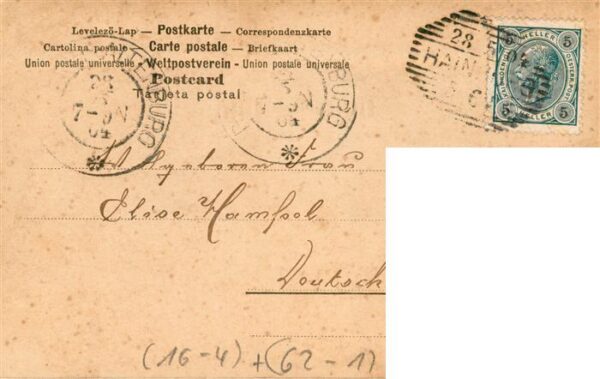 Levelező-Lap — Postkarte — Correspondenzkarte
Cartolina postale — Carte postale — Briefkaart
Union postale universelle — Weltpostverein — Union postale universale
Postcard
Tarjeta postal
28
HAIN
C
5 HELLER 5
5 HELLER 5
BURG
7-9V
04
*
BURG
04
*
Wolgeboren Frau
Elise Hampel
Deutsch
(16-4)+(62-1)